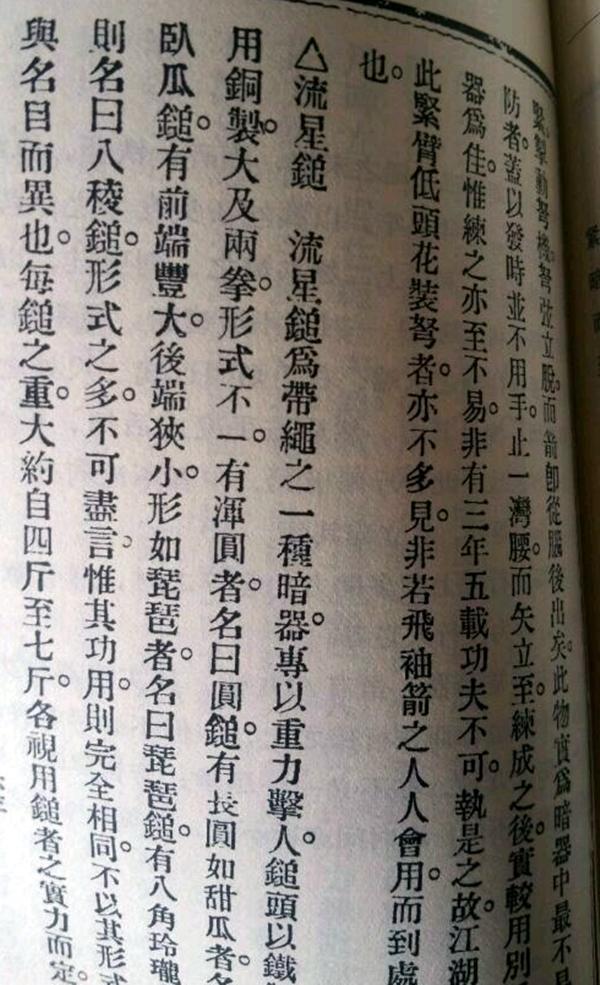 緊掣動弩機。弩弦立脫。而箭卽從腦後出矣。此物實爲暗器中最不易
防者。蓋以發時並不用手。止一灣腰。而矢立至。練成之後。實較用別
器爲佳。惟練之亦至不易。非有三年五載功夫不可。執是之故。江湖
此緊臂低頭花裝弩者。亦不多見。非若飛袖箭之人人會用。而到處
也。
△流星鎚　流星鎚爲帶繩之一種暗器。專以重力擊人。鎚頭以鐵
用銅製。大及兩拳。形式不一。有渾圓者。名曰圓鎚。有長圓如甜瓜者。名
臥瓜鎚。有前端豐大。後端狹小。形如琵琶者。名曰琵琶鎚。有八角玲瓏
則名曰八稜鎚。形式之多。不可盡言。惟其功用。則完全相同。不以其形式
與名目而異也。每鎚之重。大約自四斤至七斤。各視用鎚者之實力而定。